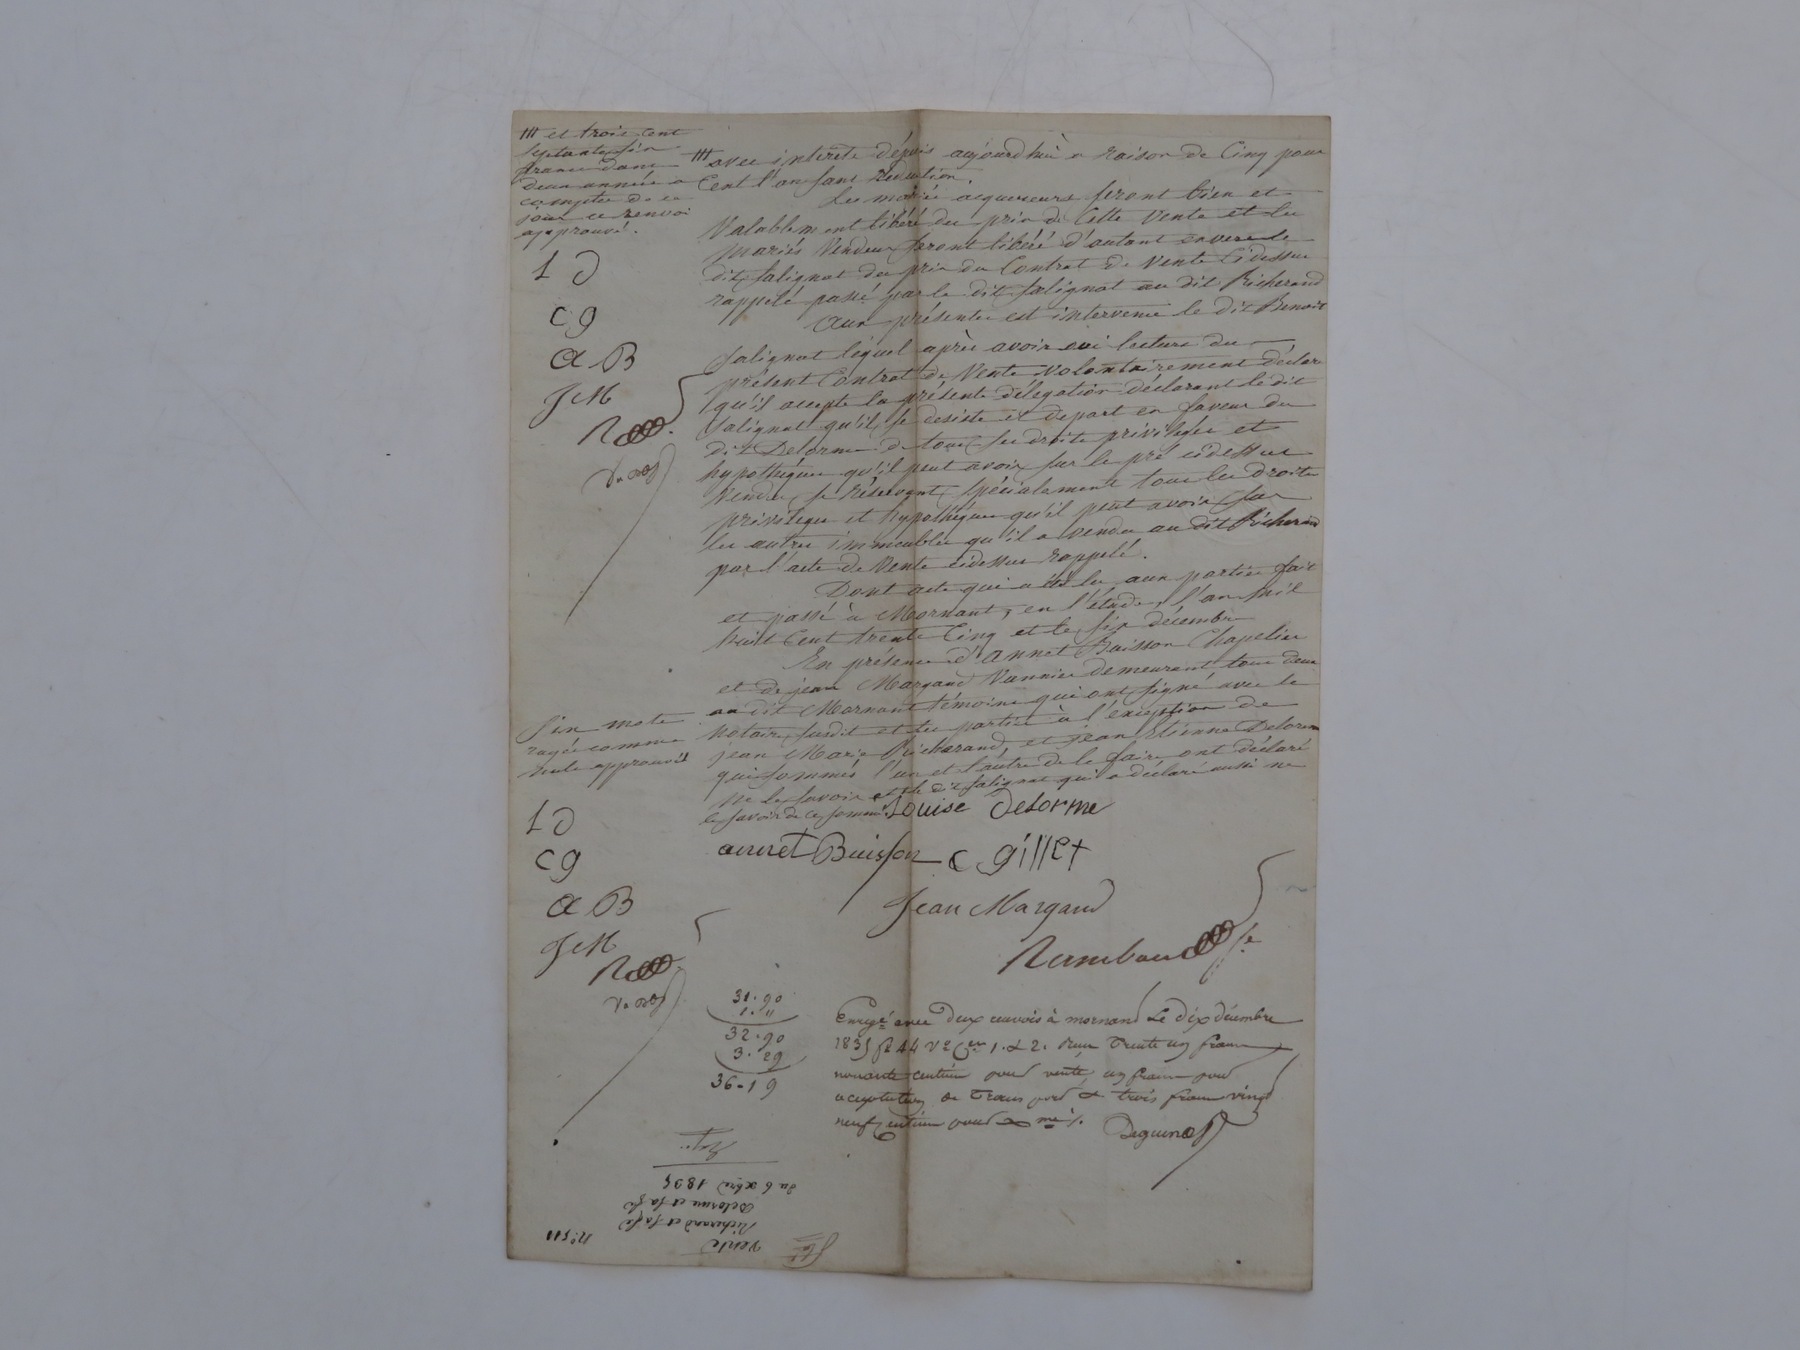 et trois cent
septante six
francs dans
deux années a
compter de ce
jour ce renvoi
approuvé.
L D
C g
a B
J M
avec intérêts dépuis aujourdhui a raison de Cinq pour
Cent l'an sans réduction.
Les mariés acquereurs seront bien et
Valablement libéré du prix de Cette Vente et les
mariés Vendeurs seront libéré d'autant envers le
dit Salignat du prix du Contrat de Vente Cidessus
rappelé passé par le dit Salignat au dit Richerand
Aux présentes est intervenu le dit Benoit
Salignat lequel après avoir oui lecture du
présent Contrat de Vente volontairement déclare
qu'il accepte la présente délégation déclarant le dit
Salignat qu'il se desiste et depart en faveur du
dit Delorme de tous ses droits privileges et
hypothéques qu'il peut avoir sur le pré cidessus
Vendu, se réservant spécialement tous les droits
privileges et hypothéques qu'il peut avoir sur
les autres immeubles qu'il a vendu au dit Richerand
par l'acte de Vente cidessus rappelé.
Dont acte qui a été lu aux parties fait
et passé à Mornant, en l'étude, l'an mil
huit Cent trente Cinq et le six décembre
En présence d'annet Buisson Chapelier
et de jean Margaud Vannier demeurant tous deux
au dit Mornant témoins qui ont signé avec le
Notaire susdit et les parties à l'exception de
jean Marie Richerand, et jean Etienne Delorme
qui sommés l'un et l'autre de le faire ont déclaré
ne le savoir et le dit Salignat qui a déclaré aussi ne
le savoir de ce sommé.
Six mots
rayés comme
nuls approuvés
L D
C g
a B
J M
Louise Delorme
annet Buisson C gillet
Jean Margaud
31.90
1."
32.90
3.29
36.19
Enregé avec Deux renvois à mornand Le dix décembre
1835 fo 44 Vo Ces 1. & 2. Reçu Trente un francs
nonante centimes pour vente, un franc pour
acceptation de Trans port & trois francs vingt
neuf centimes pour xme %.
Deguines
No 511
Vente
Richerand et sa fe
Delorme et sa fe
du 6 xbre 1835